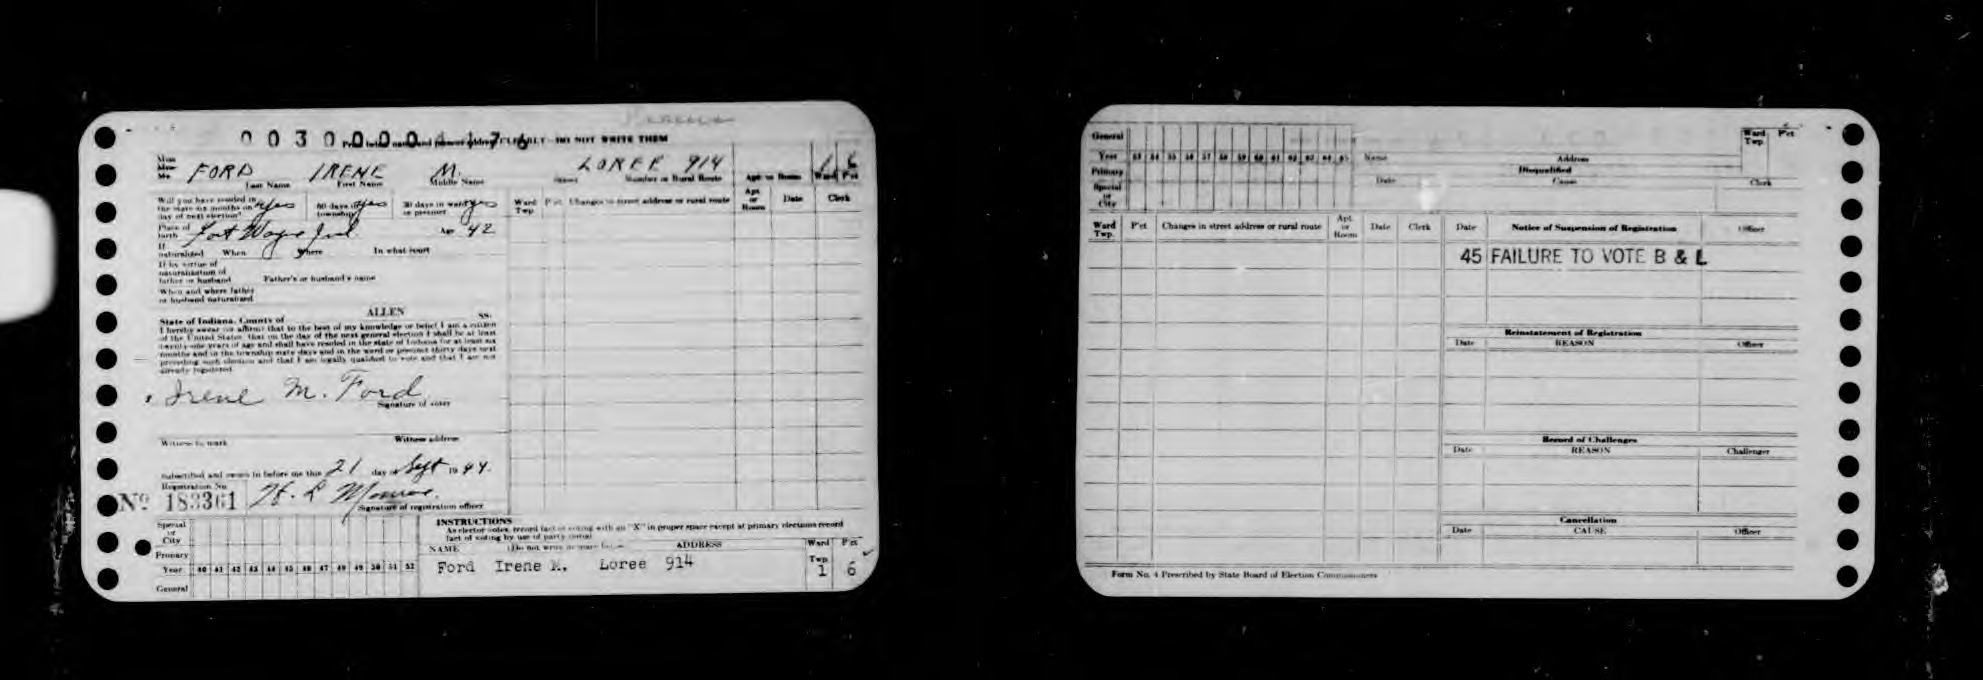 0 0 3 0 0 0 0 1 7 6
DO NOT WRITE THEM
Miss
Mrs.
Mr. FORD IRENE M. LOREE 914 1 6
Last Name First Name Middle Name Street Number or Rural Route Apt or Room Ward P'ct
Will you have resided in
the state six months on yes 60 days in yes 30 days in ward yes
day of next election? township or precinct
Ward Twp. P'ct Changes in street address or rural route Apt. or Room Date Clerk
Place of
birth Fort Wayne Ind. Age 42
If
naturalized When where In what court
If by virtue of
naturalization of
father or husband Father's or husband's name
When and where father
or husband naturalized
State of Indiana, County of ALLEN SS.
I hereby swear (or affirm) that to the best of my knowledge or belief I am a citizen
of the United States, that on the day of the next general election I shall be at least
twenty-one years of age and shall have resided in the state of Indiana for at least six
months and in the township sixty days and in the ward or precinct thirty days next
preceding such election and that I am legally qualified to vote and that I am not
already registered.
Irene M. Ford
Signature of voter
Witness to mark Witness address
Subscribed and sworn to before me this 21 day of Sept 1944.
Registration No.
No 183361 H. L. Monroe.
Signature of registration officer
Special
or
City
Primary
Year 40 41 42 43 44 45 46 47 48 49 50 51 52
General
INSTRUCTIONS
As elector votes, record fact of voting with an "X" in proper space except at primary elections record
fact of voting by use of party initial
NAME (Do not write in space below) ADDRESS Ward P'ct
Twp.
Ford Irene M. Loree 914 1 6
General
Year 53 54 55 56 57 58 59 60 61 62 63 64 65
Primary
Special
or
City
Name Address
Disqualified
Date Cause Clerk
Ward Twp. P'ct
Ward Twp. P'ct Changes in street address or rural route Apt. or Room Date Clerk
Date Notice of Suspension of Registration Officer
45 FAILURE TO VOTE B & L
Reinstatement of Registration
Date REASON Officer
Record of Challenges
Date REASON Challenger
Cancellation
Date CAUSE Officer
Form No. 4 Prescribed by State Board of Election Commissioners